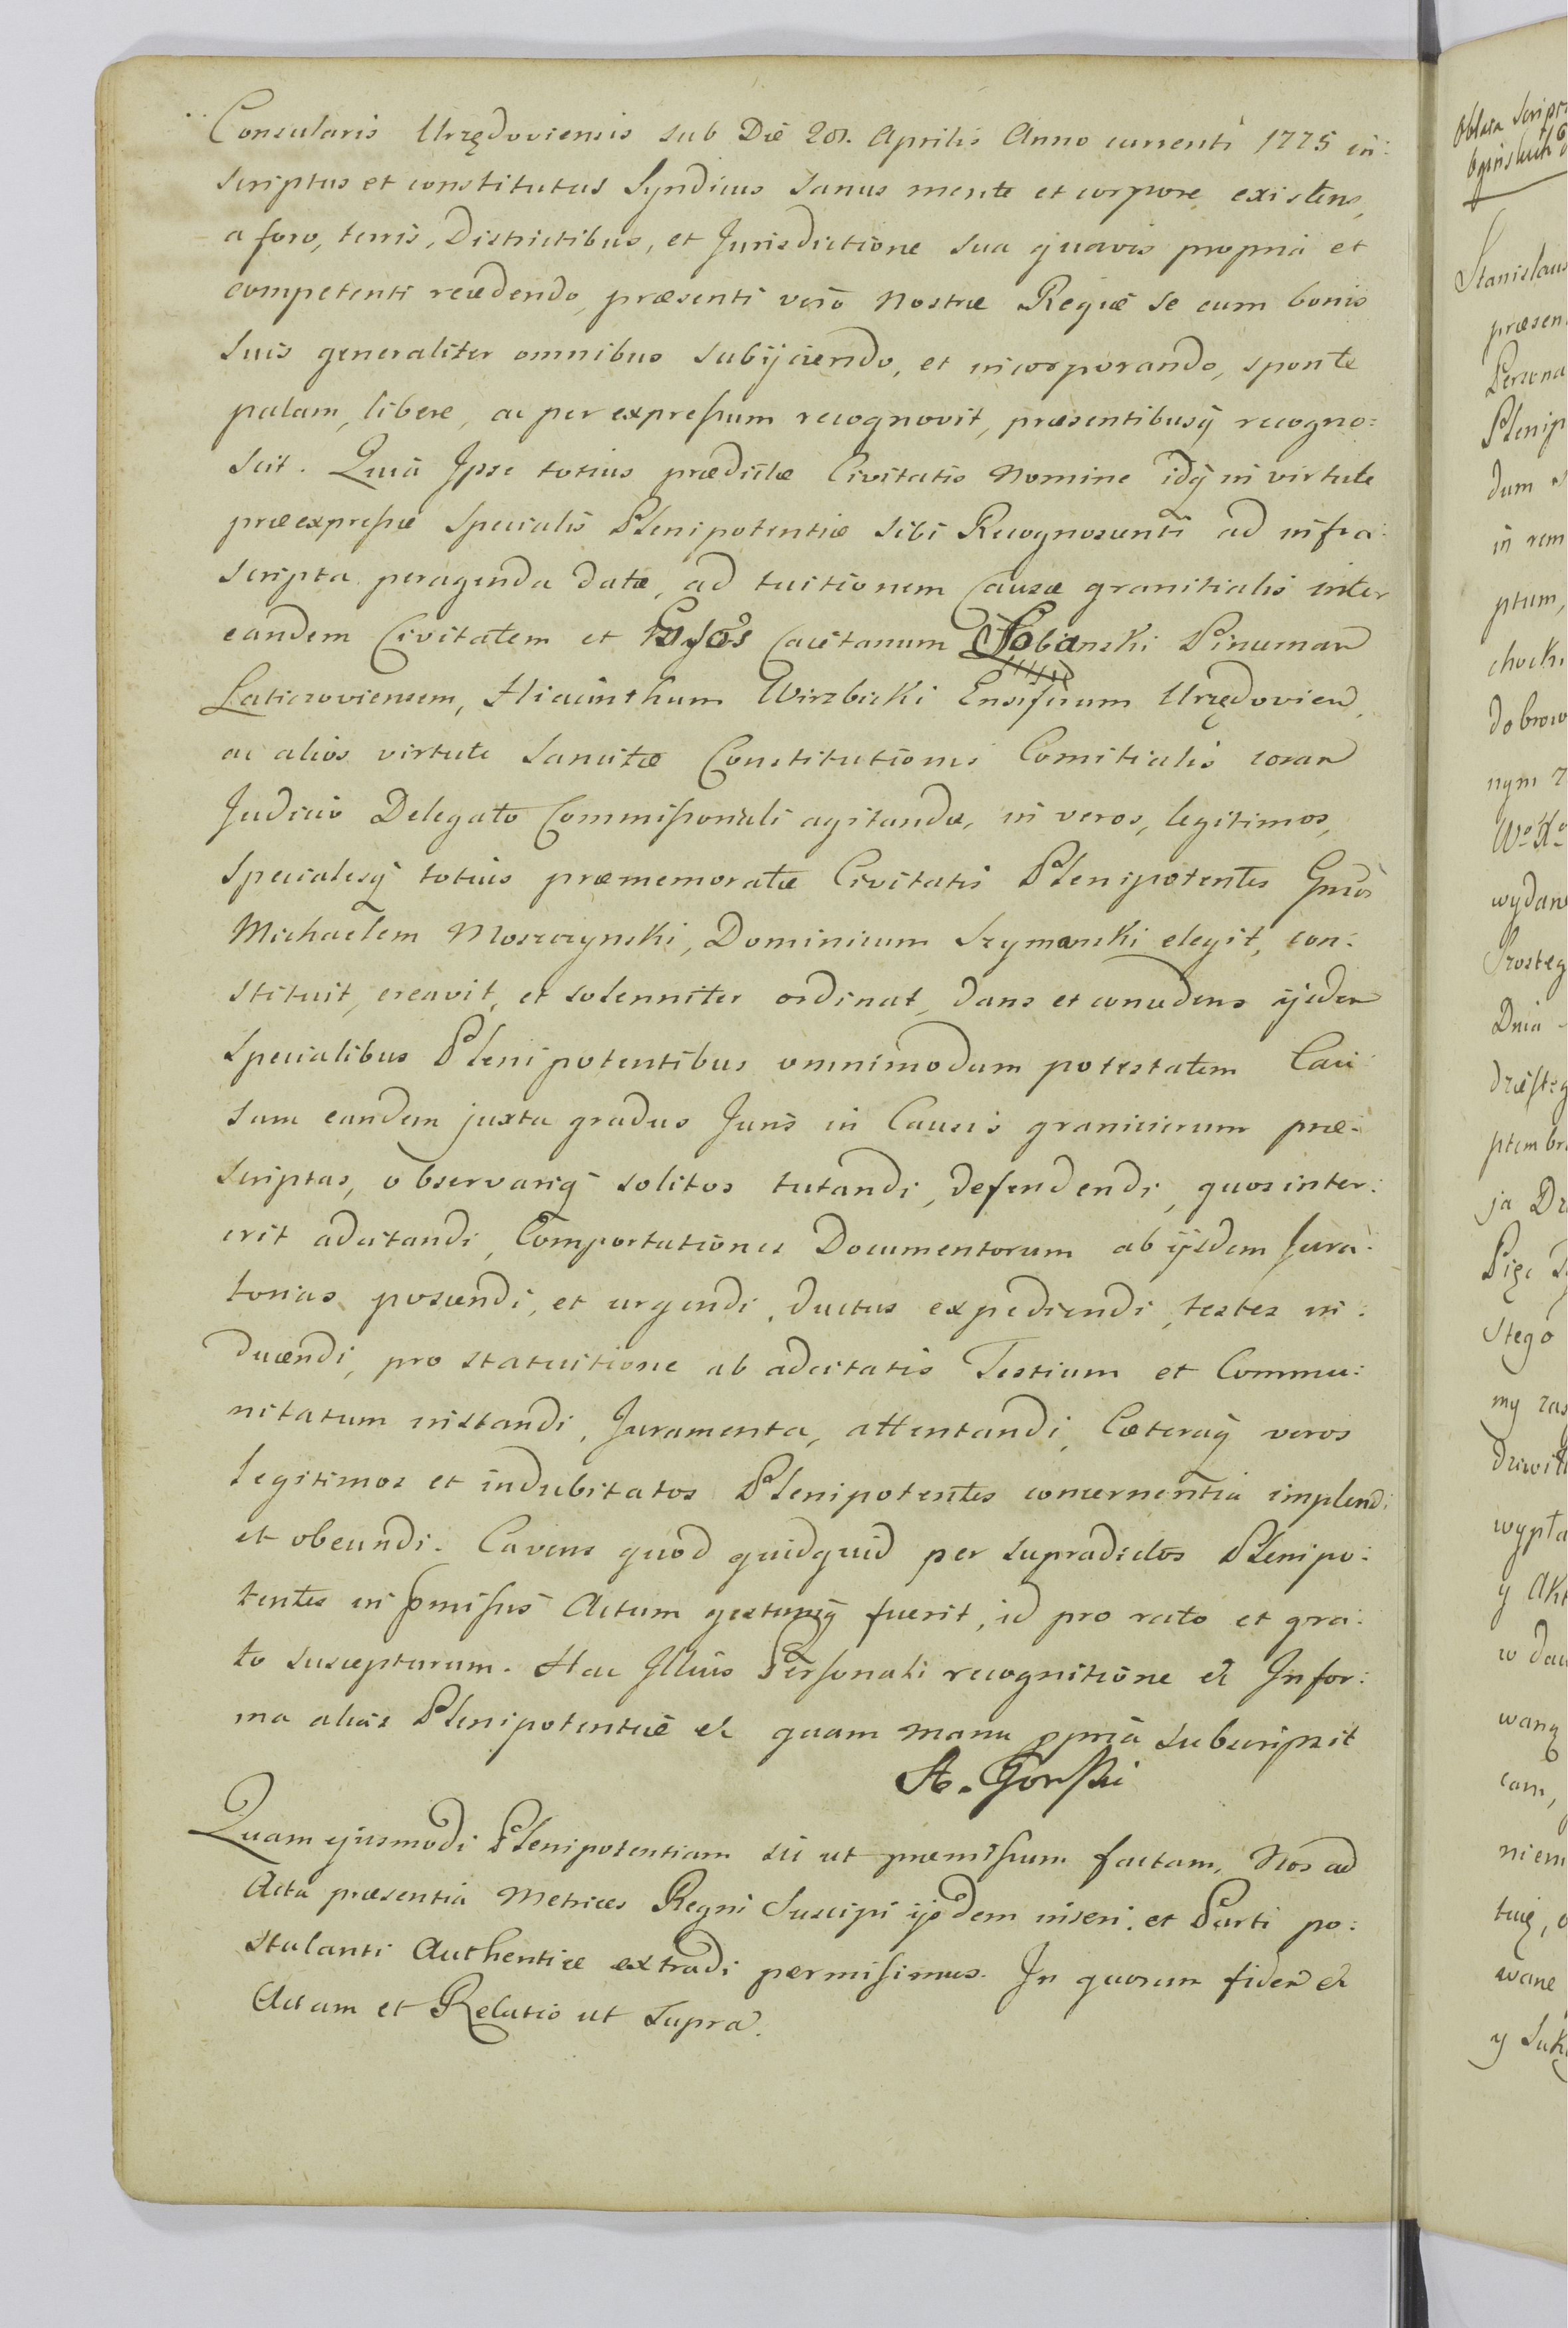 Consularis Urzędoviensis sub Die 28. Aprilis Anno currenti 1775 in:
scriptus et constitutus Syndicus sanus mente et corpore existens,
a foro, terris, Districtibus, et Jurisdictione sua quavis propria et
competenti recedendo, præsenti vero Nostræ Regiæ se cum bonis
suis generaliter omnibus subijciendo, et incorporando, sponte
palam, libere, ac per expressum recognovit, præsentibusq recogno:
scit. Quia Ipse totius prædictæ Civitatis Nomine idq in virtute
præexpressæ Specialis Plenipotentiæ sibi Recognoscenti ad infra:
scripta peragenda datæ, ad tuitionem Causæ granitialis inter
eandem Civitatem et Caietanum Pincernam
Laticzoviensem, Hiacinthum Wirzbicki Ensiferum Urzędovien,
ac alios virtute sancitæ Constitutionis Comitialis coram
Judicio Delegato Commissoriali agitandæ, in veros, legitimos,
Specialesq totius præmemoratæ Civitatis Plenipotentes Gnrōs
Michaelem Moszczynski, Dominicum Szymanski elegit, con:
stituit, creavit, et solenniter ordinat, dans et concedens ijsdem
Specialibus Plenipotentibus omnimodam potestatem Cau
sam eandem juxta gradus Juris in Causis granicierum præ:
scriptas, observariq solitos tutandi, defendendi, quos inter:
erit adcitandi, Comportationes Documentorum ab ijsdem Jura:
torias poscendi, et urgendi, ductus expediendi, testes in:
ducendi, pro statuitione ab adcitatis Testium et Commu:
nitatum instandi, Juramenta, attentandi, Cæteraq veros
legitimos et indubitatos Plenipotentes concernentia implendi
et obeundi. Cavens quod quidquid per supradictos Plenipo:
tentes in pmissis Actum gestumq fuerit, id pro rato et gra:
to suscepturum. Hac Illius Personali recognitione et Infor:
ma alias Plenipotentiæ et quam manu ppria subscripsit
St. Gorski
Quam ejusmodi Plenipotentiam sic ut præmissum factam, Nos ad
Acta præsentia Metrices Regni Suscipi ijsdem inseri, et Parti po:
stulanti Authentice extradi permisimus. In quorum fidem et
Actum et Relatio ut supra.
Stanislaus
præsen
Persona
Plenip
dum
in rem
ptum,
chocki
dobrow
nym
wydan
Dnia
ptembr
ja
Stego
my
wypła
w
wang
cam,
niem
wane
y